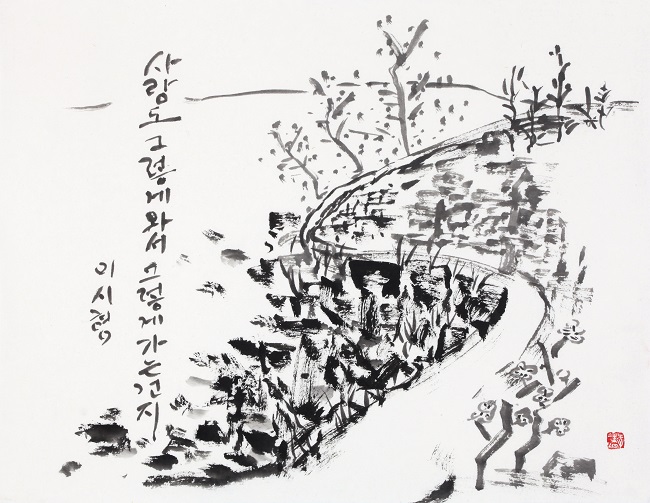 사람도 그렇게 와서 그렇게 가는 건지
이시형